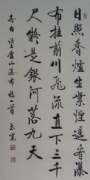 日照香爐生紫煙遥看瀑
布挂前川飛流直下三千
尺疑是銀河落九天
李白望廬山瀑布詩一首